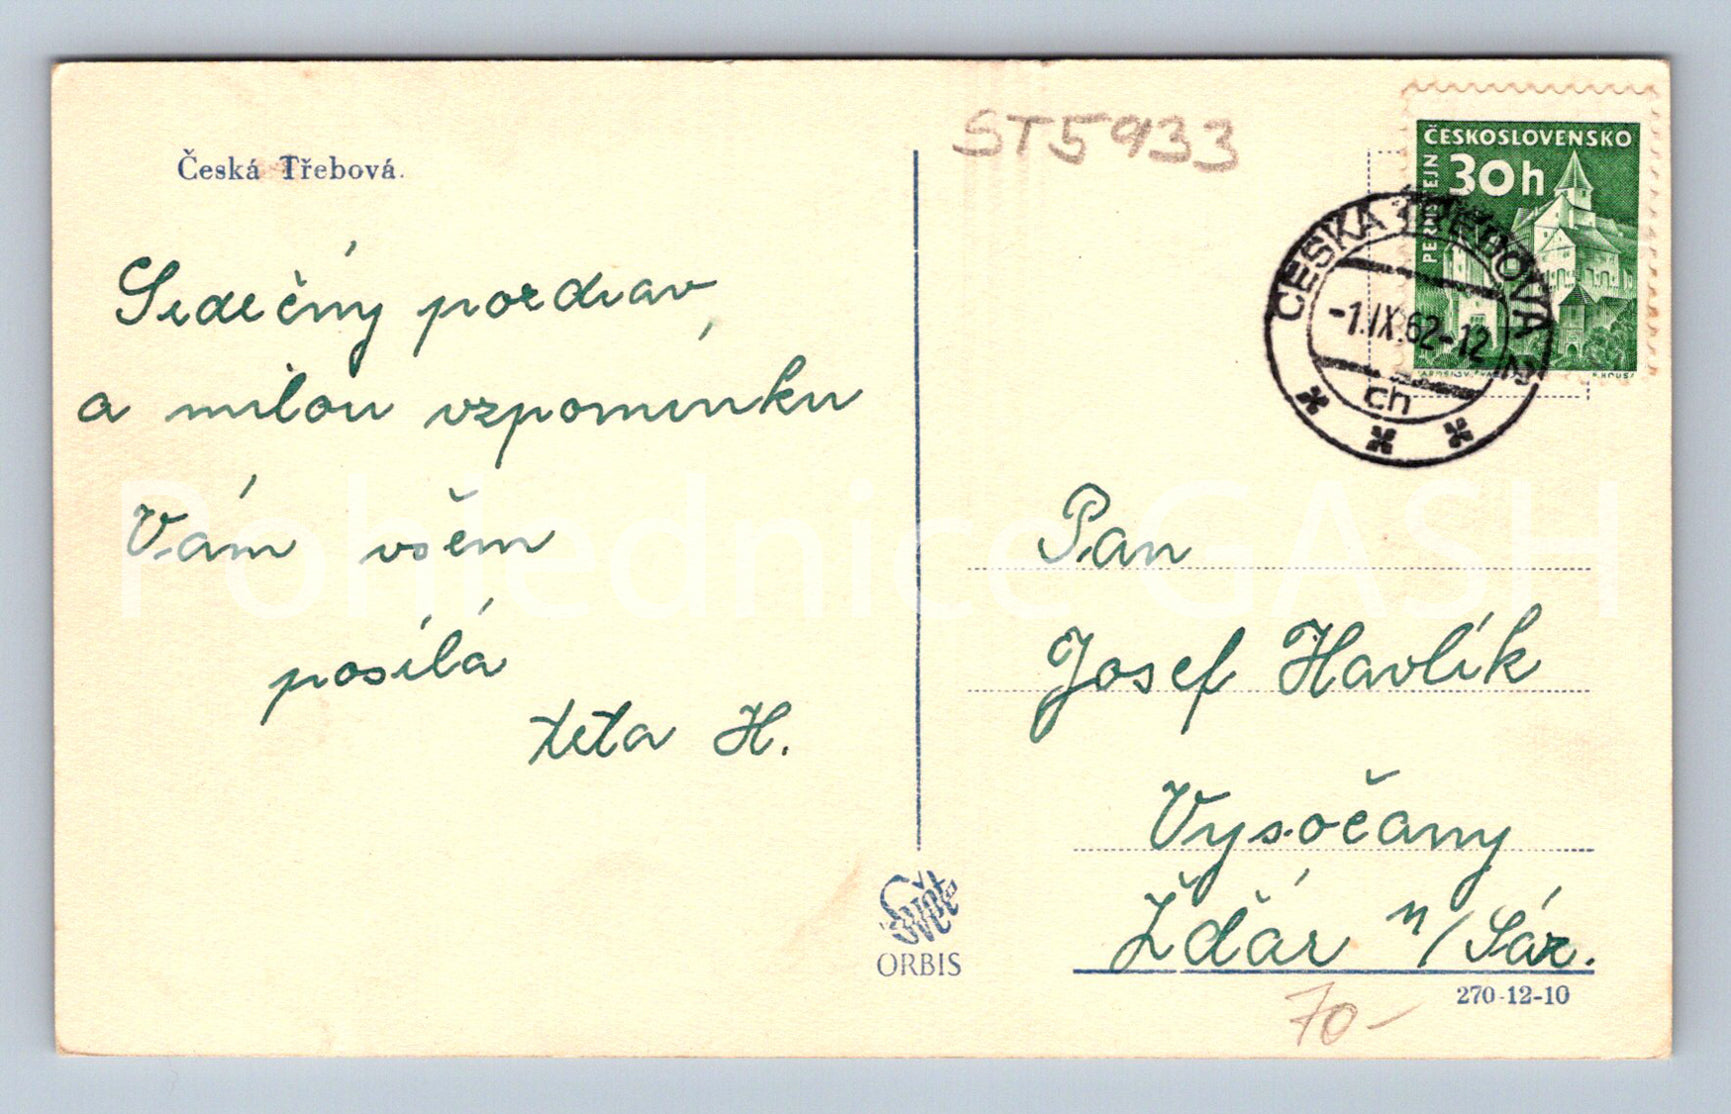 Česká Třebová.
ST5933
ČESKOSLOVENSKO
30h
ČESKÁ TŘEBOVÁ 2
-1.IX.62-12
ch
Srdečný pozdrav
a milou vzpomínku
Vám všem
posílá
teta H.
Pohlednice GASH
Pan
Josef Havlík
Vysočany
Žďár n/Sáz.
Svět
ORBIS
270-12-10
70-